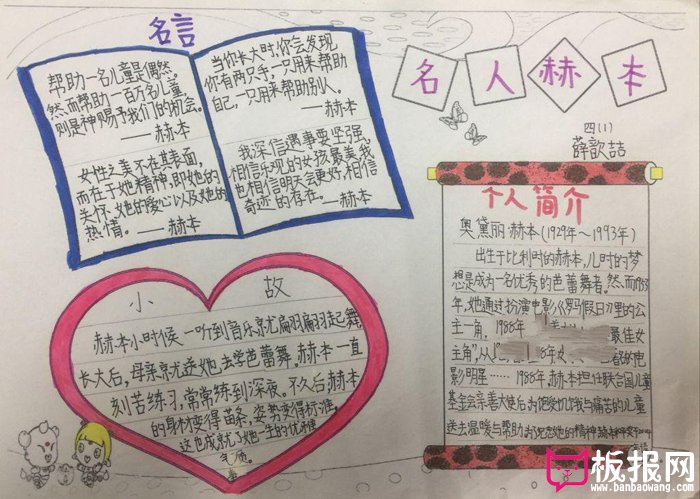 名言
帮助一名儿童是偶然,
然而帮助一百万名儿童,
则是神赐予我们的机会。
——赫本
女性之美不在其表面,
而在于她精神,即她的
关怀、她的爱心以及她的
热情。——赫本
当你长大时,你会发现
你有两只手,一只用来帮助
自己,一只用来帮助别人。
——赫本
我深信遇事要坚强,
相信乐观的女孩最美,我
也相信明天会更好,相信
奇迹的存在。——赫本
名人赫本
四(1)
薛歆喆
个人简介
奥黛丽·赫本(1929年～1993年)
出生于比利时的赫本,儿时的梦
想是成为一名优秀的芭蕾舞者。然而1953
年,她通过扮演电影《罗马假日》里的公
主一角,1988年
最佳女
主角",从
8年
电
影明星……1988年赫本担任联合国儿童
基金会亲善大使后
与痛苦的儿童
送去温暖与帮助
她的精神
小故
赫本小时候一听到音乐就扁羽扁羽起舞
长大后,母亲就送她去学芭蕾舞。赫本一直
刻苦练习,常常练到深夜。不久后,赫本
的身材变得苗条,姿势变得标准,
这也成就了她一生的优雅
气质。
板报网
www.banbaowang.com